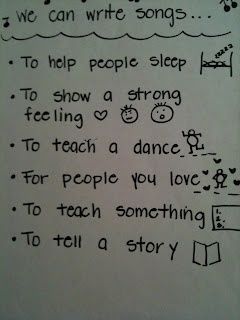 we can write songs...
• To help people sleep zzzz
• To show a strong
feeling
• To teach a dance
• For people you love
• To teach something 1.
2.
3.
• To tell a story